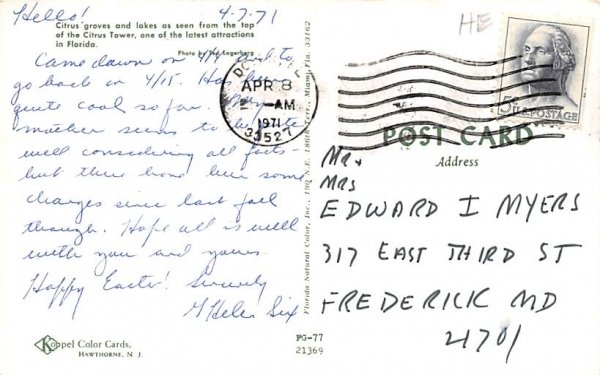 Hello! 4-7-71
Citrus groves and lakes as seen from the top
of the Citrus Tower, one of the latest attractions
in Florida.
Photo by Ted Lagerberg
Came down on 4/4 to
go back on 4/15. Has been
quite cool so far. My
mother seems to be quite
well considering all facts-
but there have been some
changes since last fall
though. Hope all is well
with you and yours.
Happy Easter! Sincerely
Helen Six
Koppel Color Cards.
HAWTHORNE, N. J.
Florida Natural Color, Inc., 790 N.E. 180th Street, Miami, Fla. 33162
HE
APR 8
AM
1971
33527
5¢ U.S. POSTAGE
POST CARD
Address
Mr +
Mrs
EDWARD I MYERS
317 EAST THIRD ST
FREDERICK MD
21701
PG-77
21369